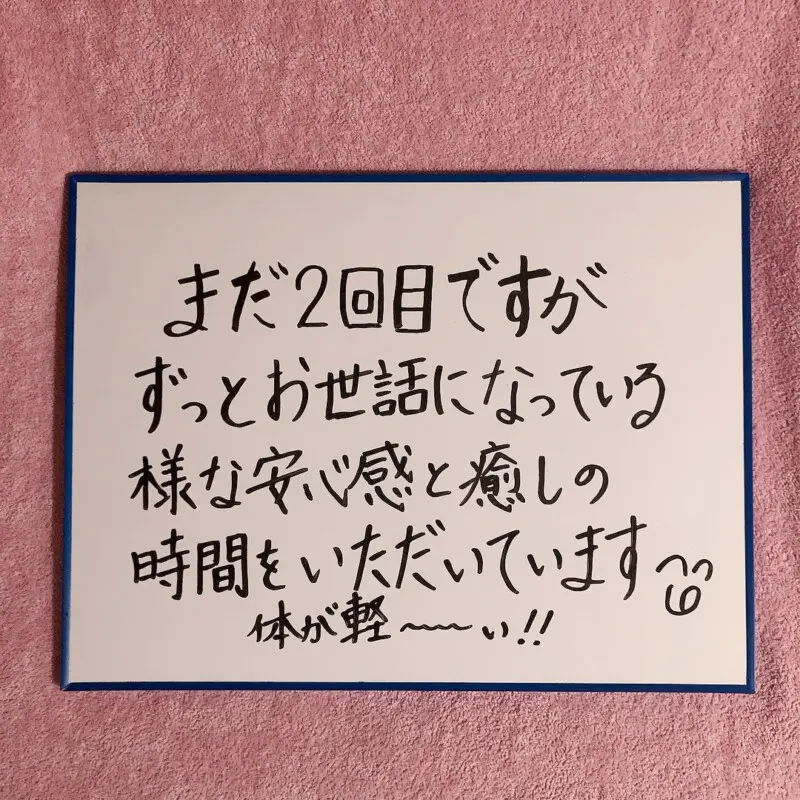 まだ2回目ですが
ずっとお世話になっている
様な安心感と癒しの
時間をいただいています
体が軽〜〜い!!